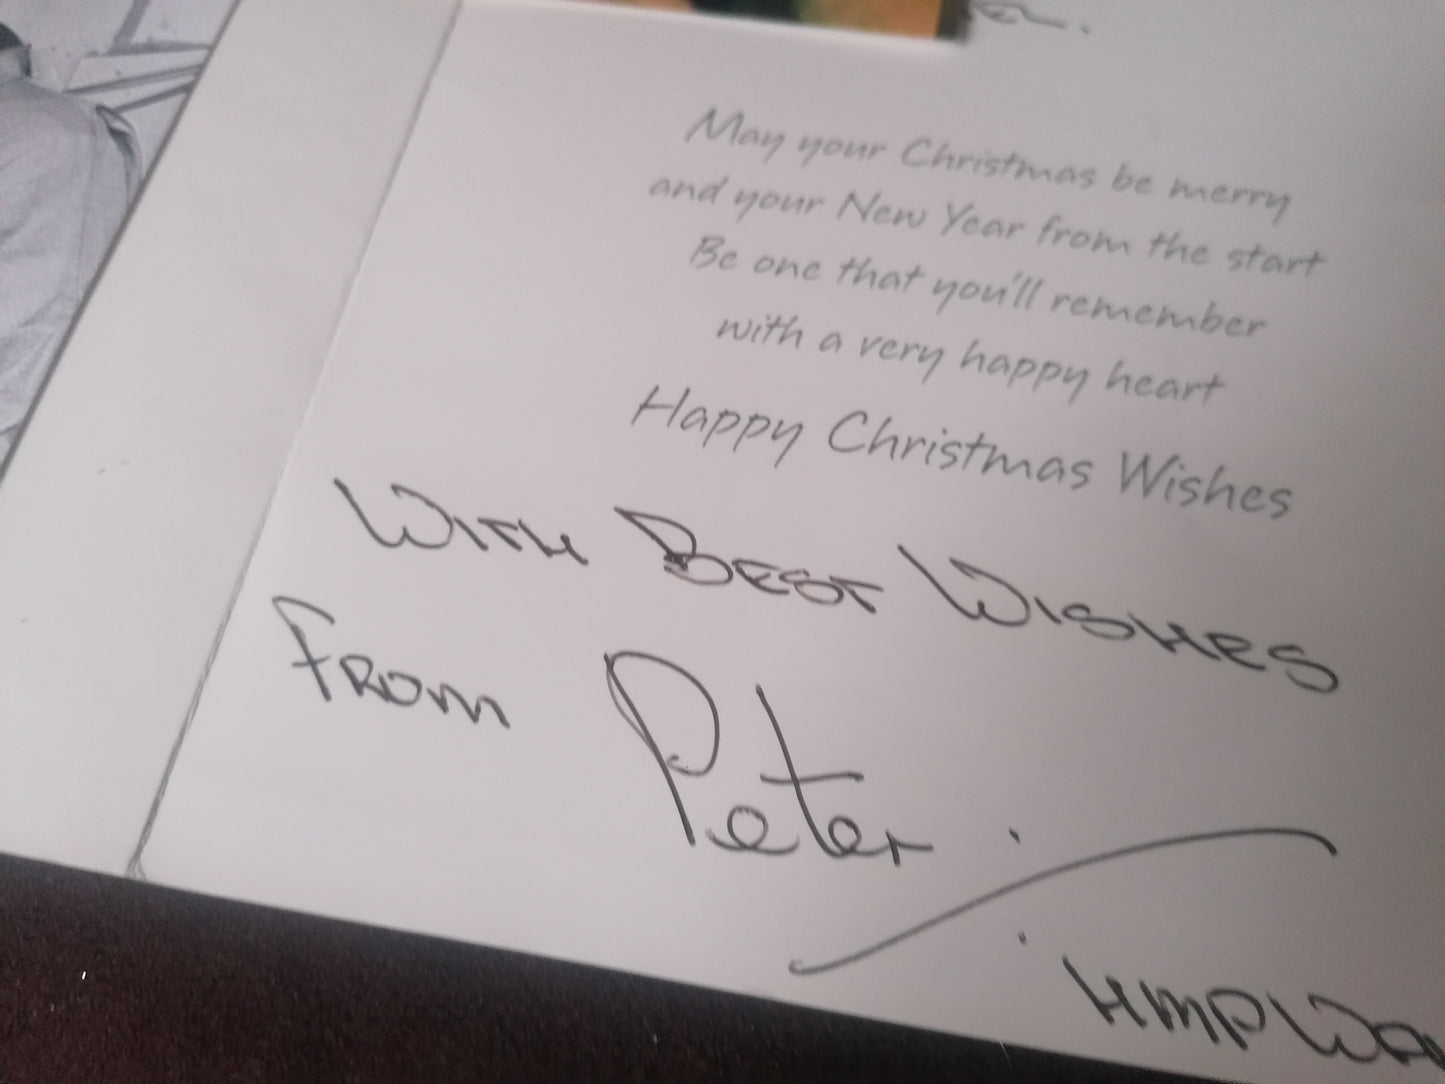 May your Christmas be merry
and your New Year from the start
Be one that you'll remember
with a very happy heart
Happy Christmas Wishes
WITH BEST WISHES
FROM Peter.
HMP